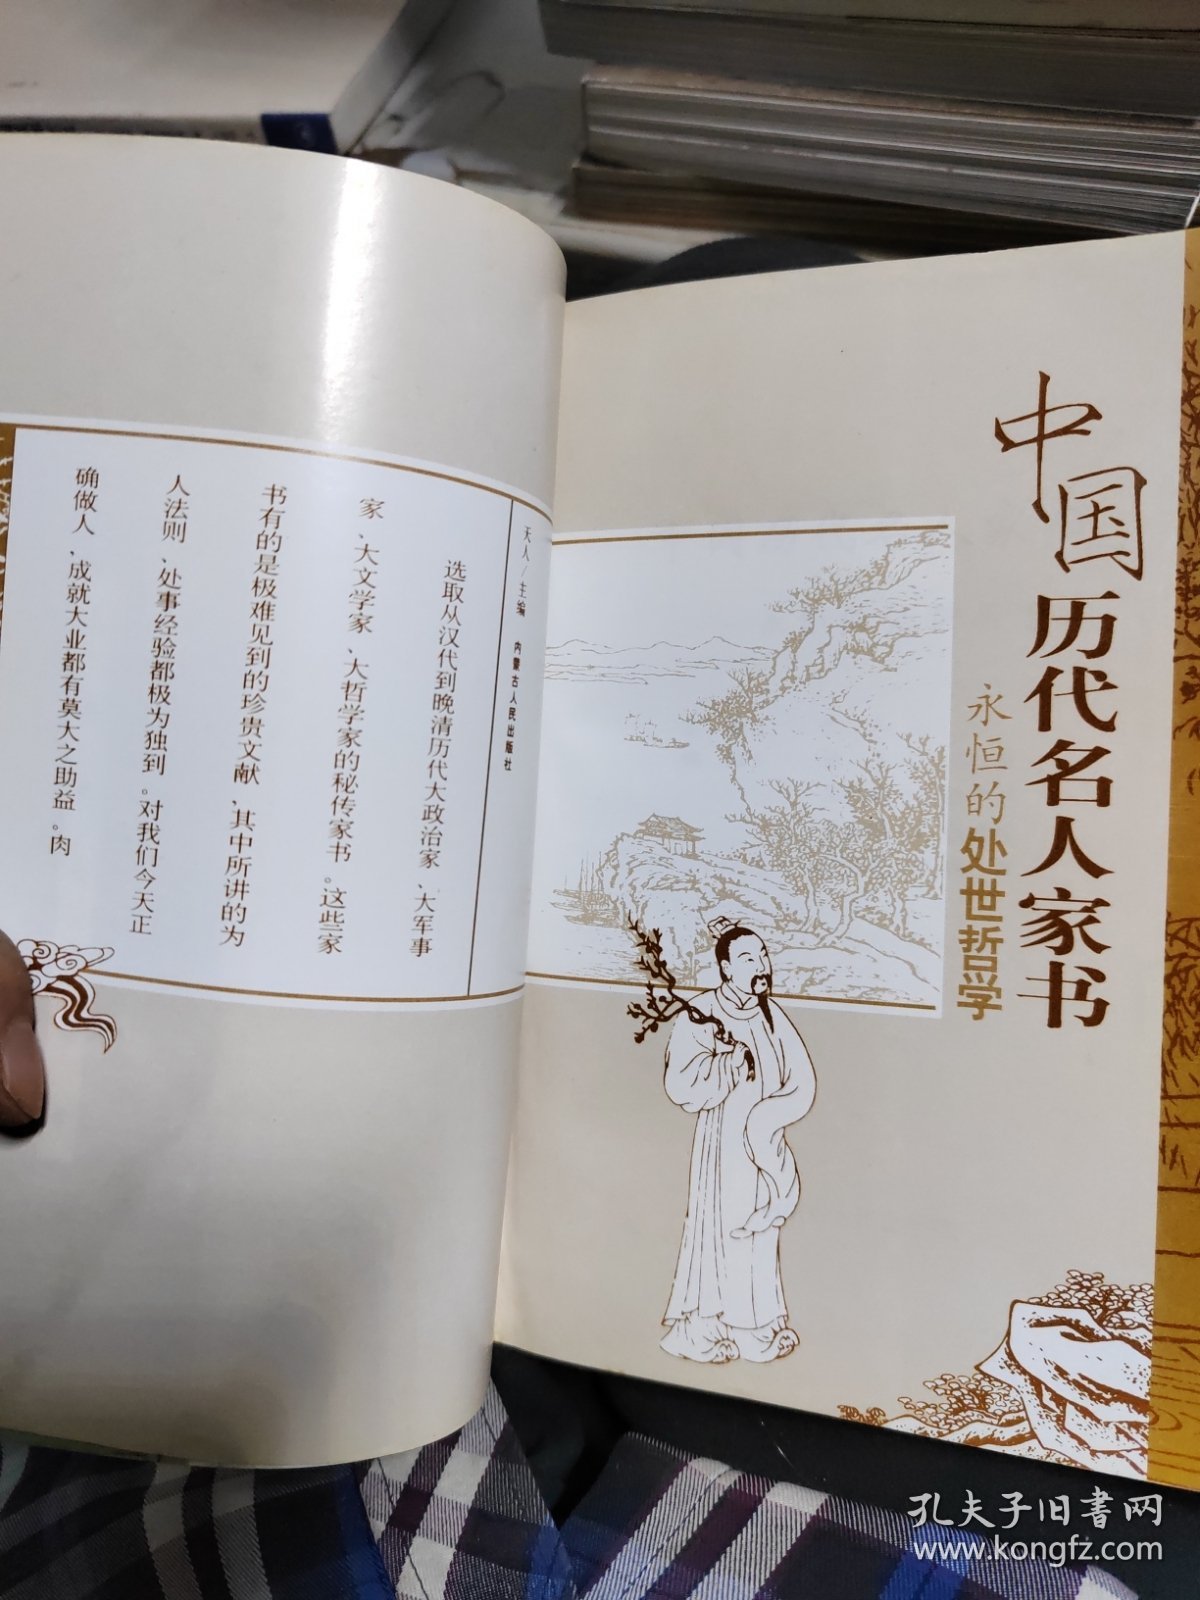 中国历代名人家书
永恒的处世哲学
天人/主编 内蒙古人民出版社
选取从汉代到晚清历代大政治家、大军事
家、大文学家、大哲学家的秘传家书。这些家
书有的是极难见到的珍贵文献、其中所讲的为
人法则、处事经验都极为独到。对我们今天正
确做人、成就大业都有莫大之助益。肉
孔夫子旧書网
www.kongfz.com